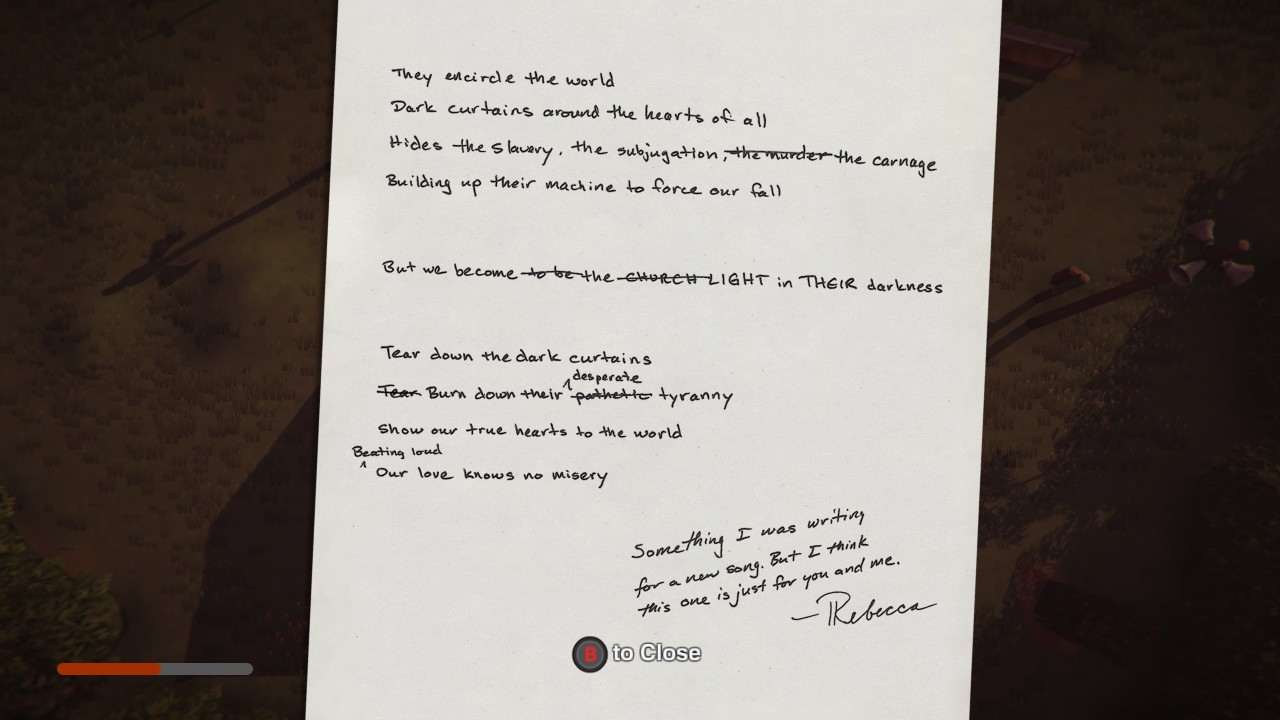 They encircle the world
Dark curtains around the hearts of all
Hides the slavery, the subjugation, the murder the carnage
Building up their machine to force our fall
But we become to be the CHURCH LIGHT in THEIR darkness
Tear down the dark curtains
desperate
Tear Burn down their pathetic tyranny
Show our true hearts to the world
Beating loud
Our love knows no misery
Something I was writing
for a new song. But I think
this one is just for you and me.
—Rebecca
B to Close